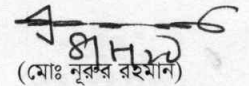 (মোঃ নূরুর রহমান)